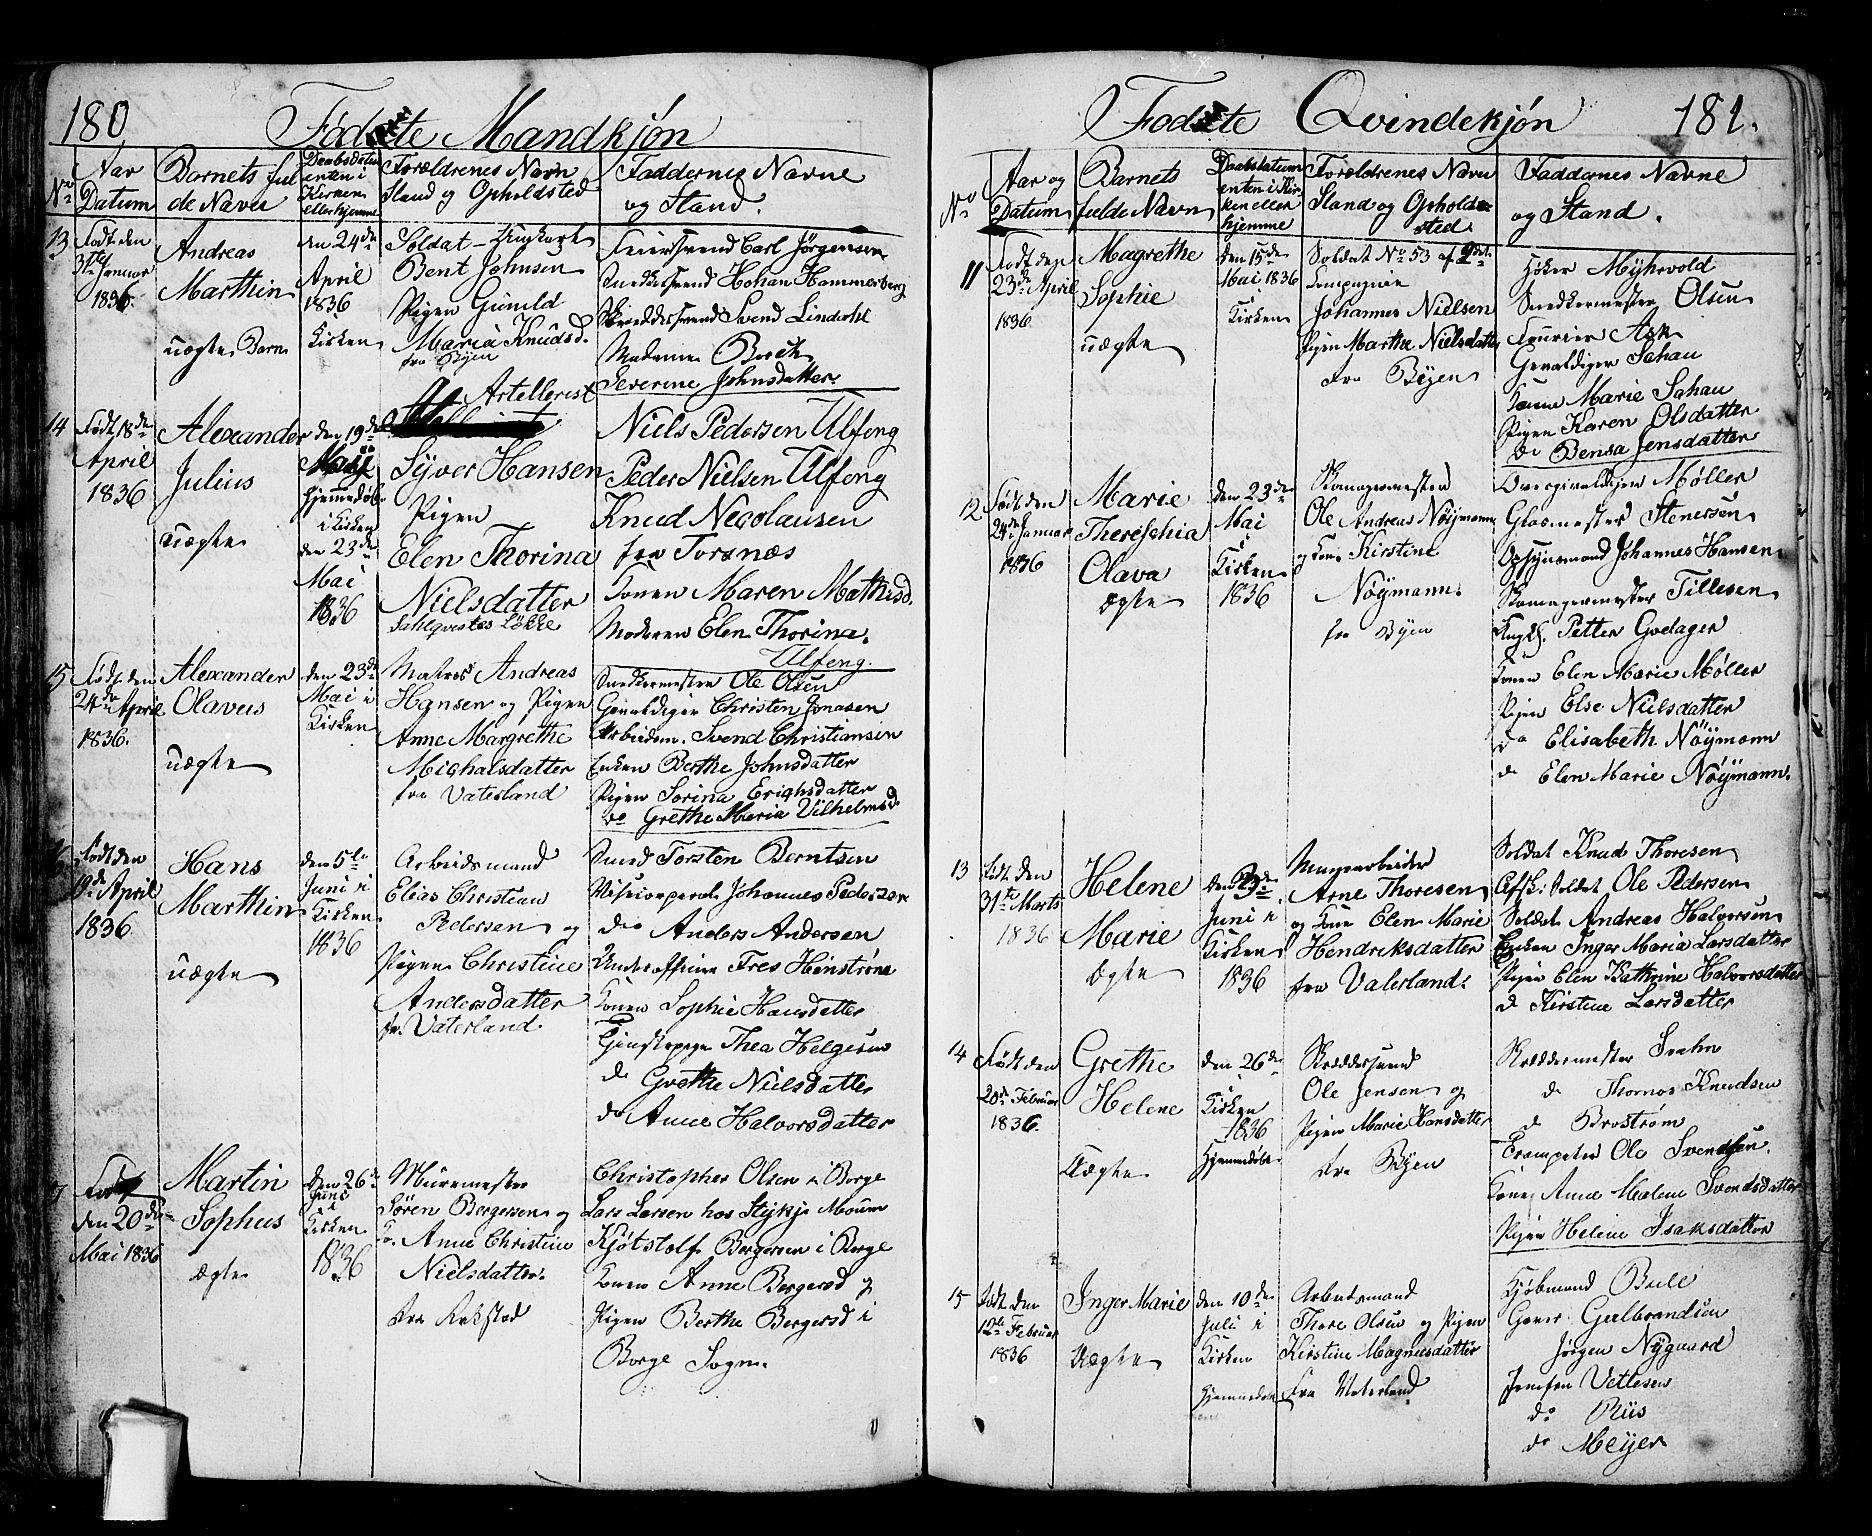 180
Fødte Mandkjøn
No
Aar
Datum
Barnets ful
de Navn
Daabsdatum
enten i
Kirken
eller hjemme
Forældrenes Navn
Stand og Opholdsted
Faddernes Navne
og Stand.
13
Født den
31te Januar
1836.
Andreas
Marthin
uægte Barn
den 24de
April
1836
Kirken
Soldat
Bent Johnsen
Pigen Gunild
Maria Knudsd.
fra Byen
Feiersvend Carl Jørgensen
Snedkersvend Johan Hammersberg
Skreddersvend Svend Lindahl
Madame Bock
Severine Johnsdatter
14
Født 18de
April
1836
Alexander
Julius
uægte
den 19de
Maij
hjemmedøbt
i Kirken
den 23de
Mai
1836
Artellerist
Syver Hansen
Pigen
Elen Thorina
Nielsdatter
Sahlqvistes Løkke
Niels Pedersen Ulfeng
Peder Nielsen Ulfeng
Knud Negolausen
fra Torsnæs
Konen Maren Mathisd.
Moderen Elen Thorina
Ulfeng.
15
Født den
24de April
1836.
Alexander
Olaveus
uægte
den 23de
Mai i
Kirken
Matros Andreas
Hansen og Pigen
Anne Margrethe
Michalsdatter
fra Vaterland
Snedkermester Ole Olsen
Gevaldiger Christen Jonasen
Arbeidsm. Svend Christiansen
Enken Berthe Johnsdatter
Pigen Sorina Erichsdatter
do Grethe Maria Vilhelmsd.
Født den
19de April
1836
Hans
Marthin
uægte
den 5te
Juni i
Kirken
1836
Arbeidsmand
Elias Christian
Pedersen og
Pigen Christine
Andersdatter
fr. Vaterland
Smed Torsten Berntsen
Johannes Pedersen
do Anders Andersen
Underofficier Fres Hinstrøm
Konen Sophie Hansdatter
Tjenstepige Thea Helgesen
do Grethe Nielsdatter
do Anne Halvorsdatter
7
Født
den 20de
Mai 1836
Martin
Sophus
Ægte
den 26de
Juni
i
Kirken
1836
Muurmester
Søren Bergersen og
K. Anne Christine
Nielsdatter.
fra
Christopher Olsen i Borge
Lars Larsen hos Moum
Kjøtstolf Bergersen i Borge
Konen Anne Bergersd og
Pigen Berthe Bergersd i
Borge Sogn.
Fødte Qvindekjøn
181.
No
Aar og
Datum
Barnets
fulde Navn
Daabsdatum
enten i Kir
ken eller
hjemme
Forældrenes Navn
Stand og Ophold
sted
Faddernes Navne
og Stand.
11
Født den
23de April
1836
Magrethe
Sophie
uægte
den 15de
Mai 1836
Kirken
Soldat No 53 af 2det
Compagnie
Johannes Nielsen
Pigen Marthe Nielsdatter
fra Byen
Høker Myhrvold
Snedkermester Olsen
Fourier Ask
Gevaldiger Schau
Konen Marie Schau
Pigen Karen Olsdatter
do Bensa Jensdatter
12
Født den
24de Januar
1836
Marie
Thereschia
Olava
Ægte
den 23de
Mai
i
Kirken
1836
Skomagermester
Ole Andreas Nøymann
og Kone Kirstine
Nøymann
fra Byen
Overgivaldiger Møller
Glasmester Stenersen
Opsynsmand Johannes Hansen
Skomagermester Tillesen
Petter Gvelager
Konen Elen Marie Møller
Pigen Else Nielsdatter
do Elisabeth Nøymann
do Elen Marie Nøymann
13
Født den
31te Marts
1836
Helene
Marie
Ægte
Juni i
Kirken
1836
Muurarbeider
Arne Thoresen
og Kone Elen Marie
Hendriksdatter
fra Vaterland.
Soldat Knud Thoresen
Afsk: Soldat Ole Pedersen
Soldat Andreas Halvorsen
Enken Inger Maria Larsdatter
Pigen Elen Kathrine Halvorsdatter
d Kirstine Larsdatter
14
Født den
20de Februar
1836.
Grethe
Helene
Uægte
den 26de
i
Kirken
1836
Hjemmedøbt
Skreddersvend
Ole Jensen og
Pigen Marie Hansdatter
fra Byen
Skreddermester Svahn
do Thomas Knudsen
do Brostrøm
Trompeter Ole Svendsen
Kone Anne Malene Svendsdatter
Pigen Helene Isaksdatter
15
Født den
12te Februar
1836
Inger Marie
Uægte
den 10de
Juli i
Kirken
Hjemmedøbt
Arbeidsmand
Thore Olsen og Pigen
Kirstine Magnusdatter
fra Vaterland
Kjøbmand Bull
Gulbrandsen
Jørgen Nygaard
Jomfru Vettesen
do Riis
do Meyer